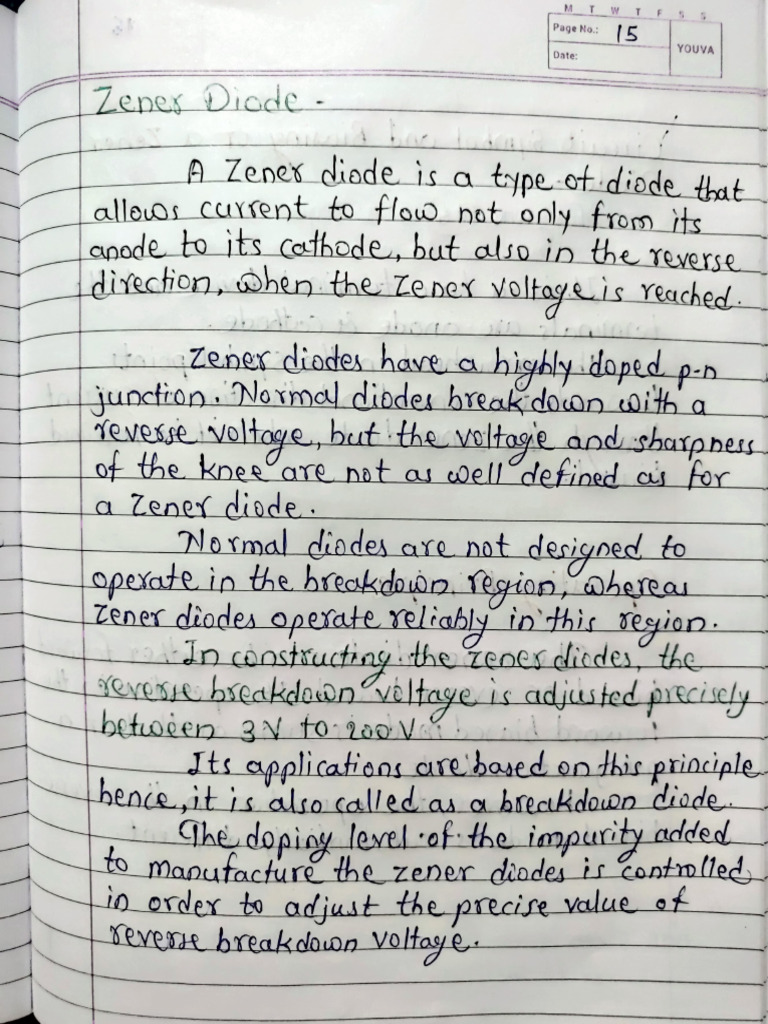 M T W T F S S
Page No.: 15
Date:
YOUVA
Zener Diode -
A Zener diode is a type of diode that
allows current to flow not only from its
anode to its cathode, but also in the reverse
direction, when the Zener voltage is reached.
Zener diodes have a highly doped p-n
junction. Normal diodes break down with a
reverse voltage, but the voltage and sharpness
of the knee are not as well defined as for
a Zener diode.
Normal diodes are not designed to
operate in the breakdown region, whereas
Zener diodes operate reliably in this region.
In constructing the zener diodes, the
reverse breakdown voltage is adjusted precisely
between 3V to 200V.
Its applications are based on this principle
hence, it is also called as a breakdown diode.
The doping level of the impurity added
to manufacture the zener diodes is controlled
in order to adjust the precise value of
reverse breakdown voltage.